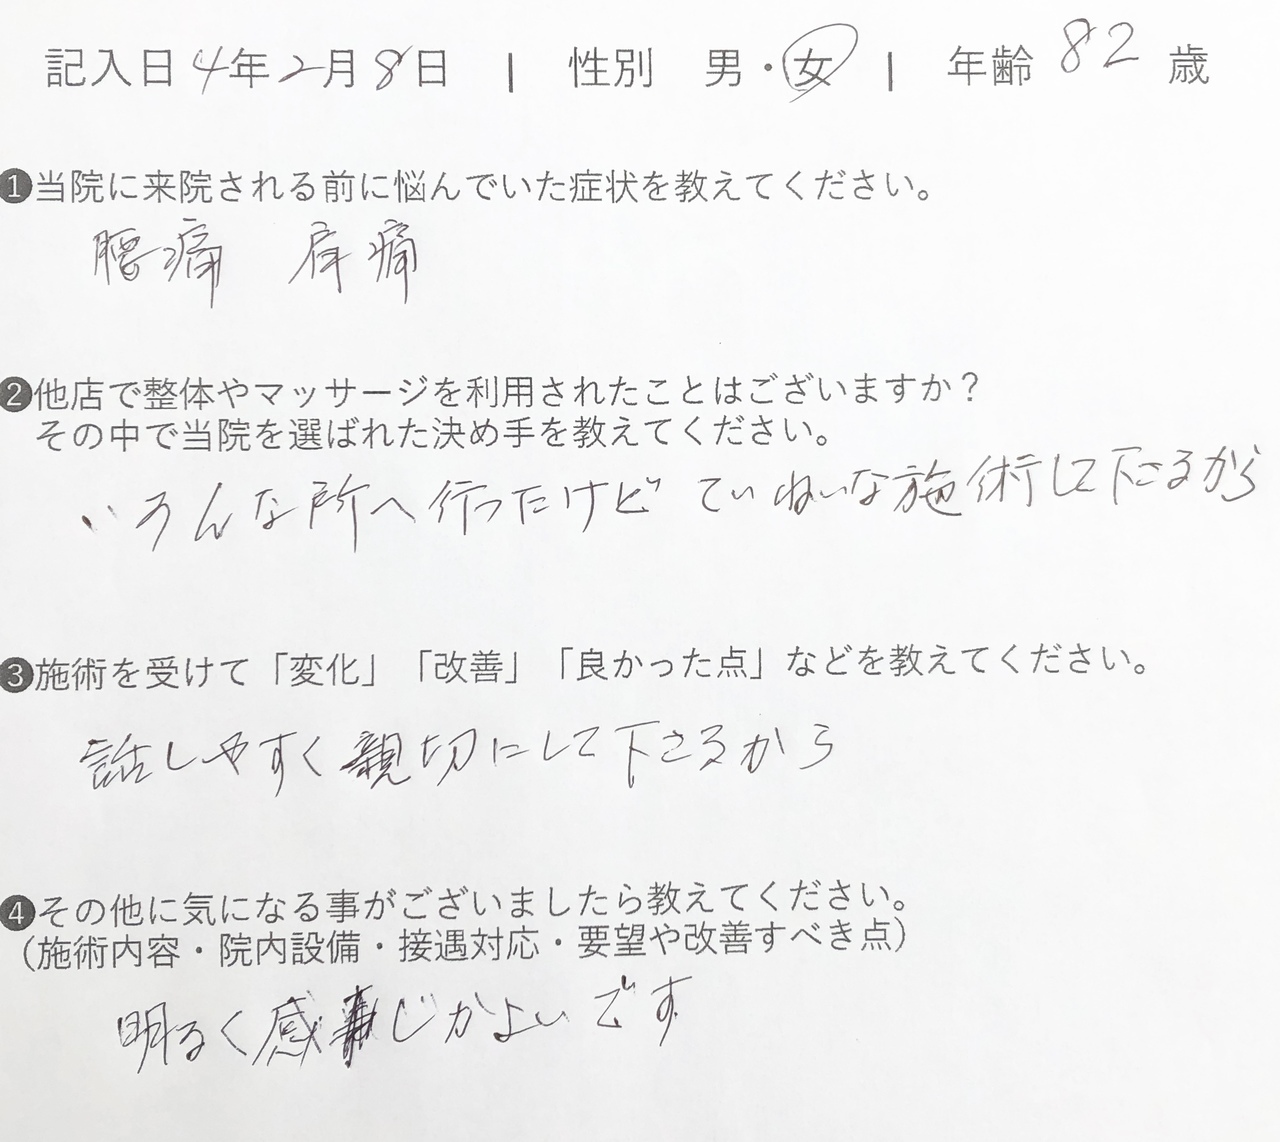 記入日 4年2月8日 | 性別 男・女 | 年齢 82 歳
❶当院に来院される前に悩んでいた症状を教えてください。
腰痛 肩痛
❷他店で整体やマッサージを利用されたことはございますか？
その中で当院を選ばれた決め手を教えてください。
いろんな所へ行ったけど ていねいな施術して下さるから
❸施術を受けて「変化」「改善」「良かった点」などを教えてください。
話しやすく親切にして下さるから
❹その他に気になる事がございましたら教えてください。
（施術内容・院内設備・接遇対応・要望や改善すべき点）
明るく感じがよいです